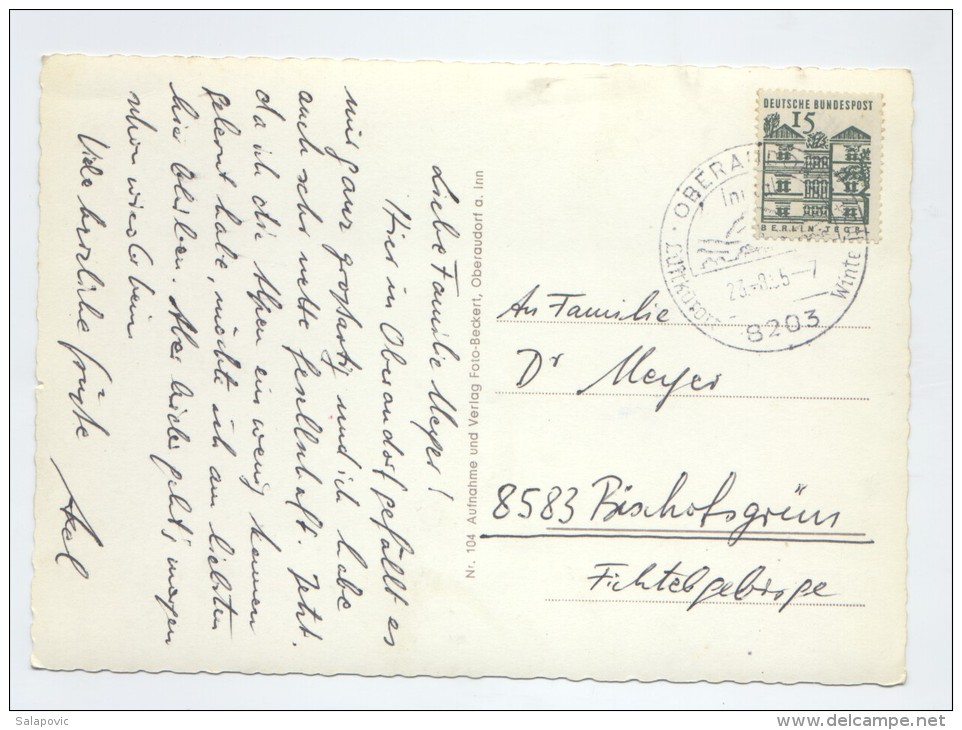 Liebe Familie Meyer!
Hier in Oberaudorf gefällt es
mir ganz großartig und ich habe
auch sehr nette Gesellschaft. Jetzt
da ich die Alpen ein wenig kennen
gelernt habe, möchte ich am liebsten
hier bleiben. Aber leider geht's morgen
schon wieder heim
Viele herzliche Grüße
Nr. 104 Aufnahme und Verlag Foto-Beckert, Oberaudorf a. Inn
DEUTSCHE BUNDESPOST
15
BERLIN-TEGEL
OBERAU
Luftkurort
Winte
8203
An Familie
Dr Meyer
8583 Bischofsgrün
Fichtelgebirge
Salapovic
www.delcampe.net